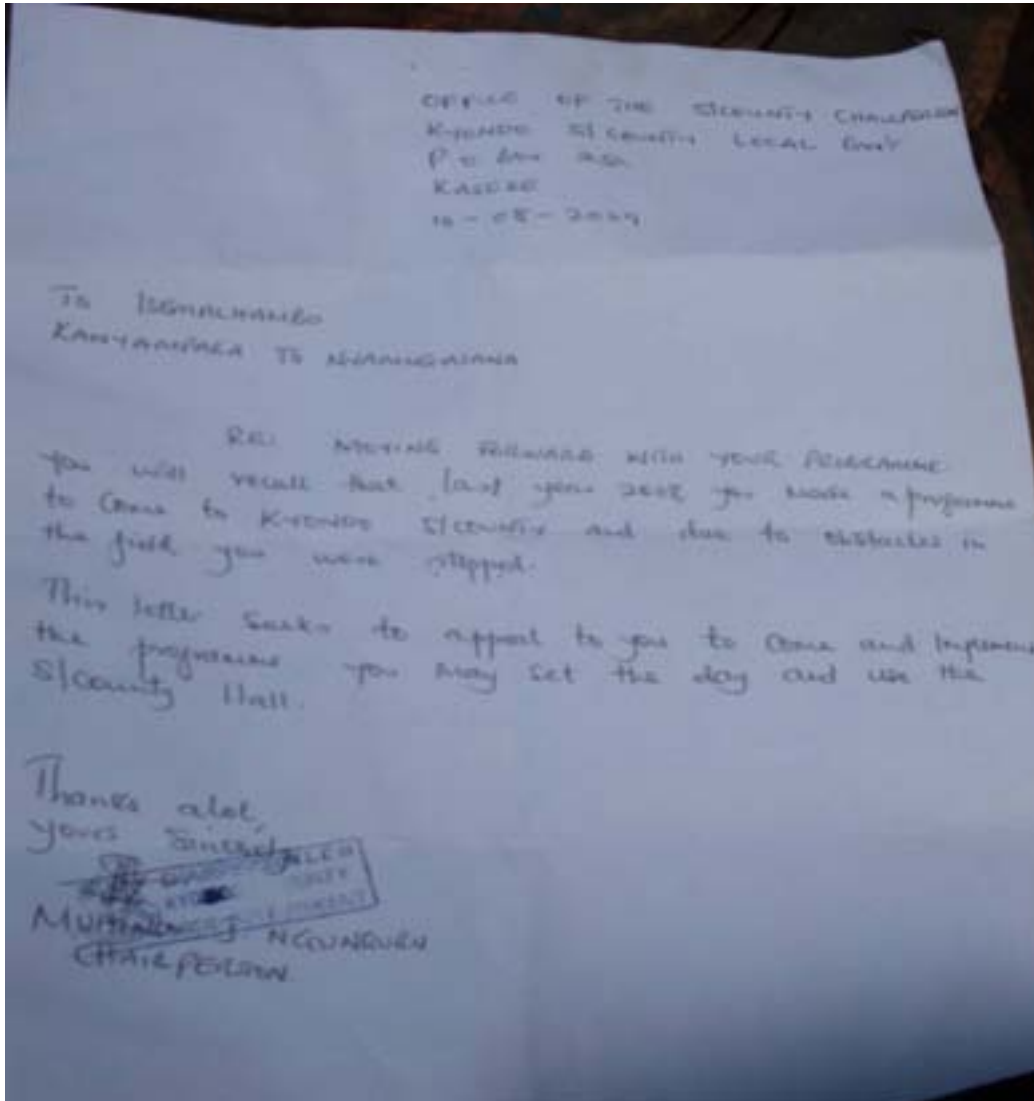 OFFICE OF THE S/COUNTY CHAIRPERSON
KYONDO S/COUNTY LOCAL GOV'T
P O Box
KASESE
To
RE: MOVING FORWARD WITH YOUR PROGRAMME
You will recall that last year you made a programme
to come to KYONDO S/COUNTY and due to obstacles in
the field you were stopped.
This letter seeks to appeal to you to come and implement
the programme you may set the day and use the
S/County Hall.
Thanks alot,
Yours Sincerely
CHAIRPERSON